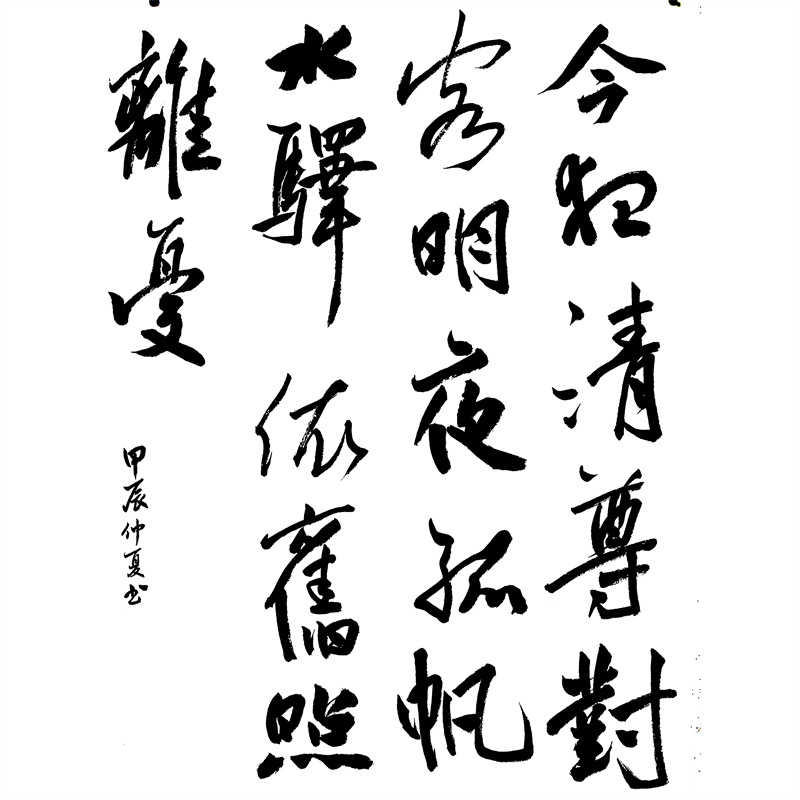 今夜清尊對
客明夜孤帆
水驛依舊照
離憂
甲辰仲夏书